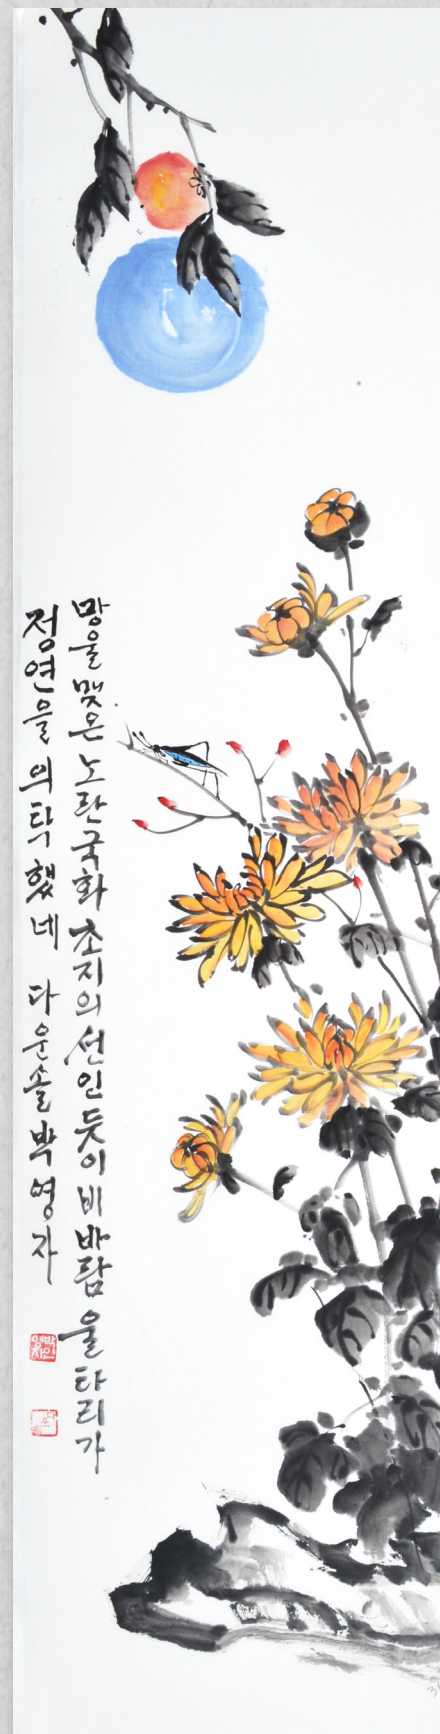 망울 맺은 노란국화 초지의 선인듯이 비바람 울타리가
정연을 의탁했네 다운솔 박영자